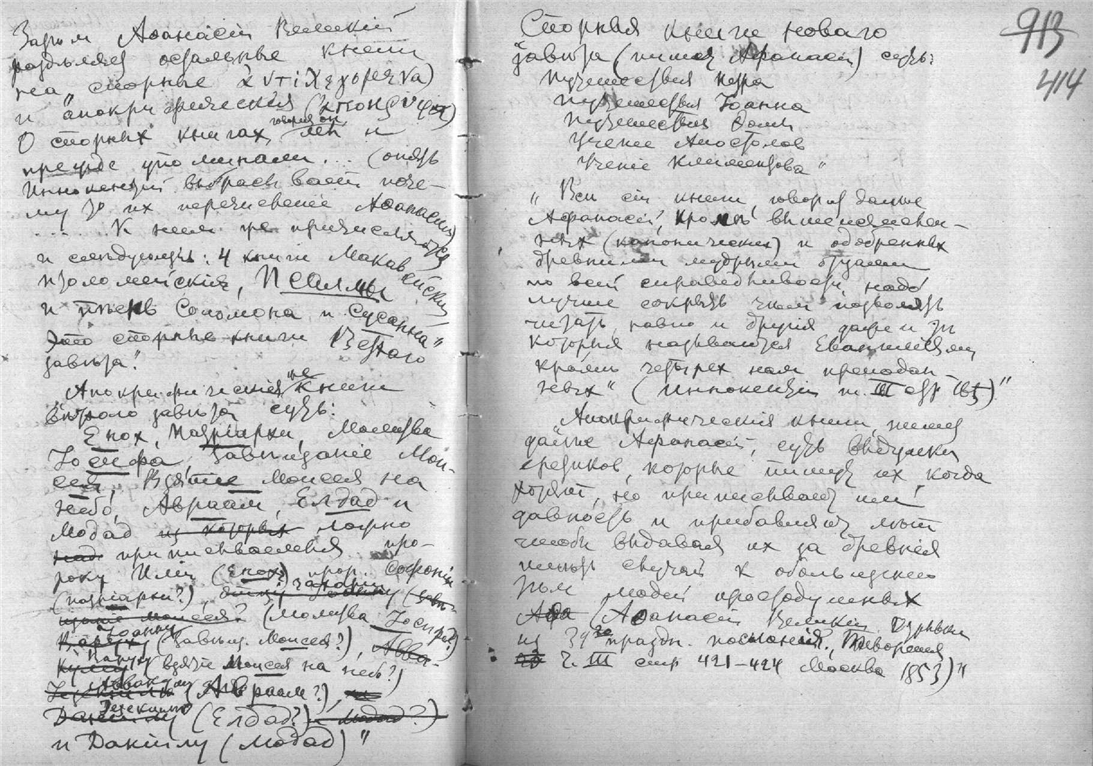 Затѣм Афанасій Великій
раздѣляя остальные книги
на „спорные
и апокрифическія
О спорных книгах, говорит он, мы и
прежде упоминали... (опять
Иннокентій выбрасывает поче-
му то их перечисленіе Афанасія)
.... К ним же причисляются
и слѣдующіе: 4 книги Макавейскія
птоломейскія, Псалмы
и пѣснь Соломона и Сусанна"
Это спорные книги Ветхаго
завѣта."
Апокрифическія же книги
завѣта суть:
Енох, Патріархи, Молитва
Іосифа, завѣщаніе Мои-
сея, Взятіе Моисея на
небо, Авраам, Елдад и
Модад из которых ложно
приписываемыя про-
року Иліи (Енох?) прор. Софоніи
(патріархи?), Захаріи
(Молитва Іосифа?)
Іоанну
(завѣщ. Моисея?), Авва-
взятіе Моисея на небо?)
Аввакуму (Авраам?),
Іезекіилю
(Елдад?) и Модад?)
и Даніилу (Модад)"
913
414
Спорныя книги новаго
завѣта (пишет Афанасій) суть:
Путешествія Петра
Путешествія Іоанна
Путешествія Ѳомы
Ученіе Апостолов
Ученіе Климентово"
„Всѣ сіи книги, говорит далѣе
Афанасій, кромѣ вышеисчислен-
ных (канонических) и одобренных
древними мудрыми отцами
по всей справедливости надо
лучше сокрыть чѣм позволять
читать, равно и другія даже и тѣ
которыя называются Евангеліями
кромѣ четырех нам преподан-
ных" (Иннокентій т. III стр 165)"
Апокрифическія книги, пишет
далѣе Афанасій, суть выдумки
еретиков, которые пишут их когда
хотят, но приписывают им
давность и прибавляют лѣт
чтобы выдавая их за древнія
имѣть случай к обольщенію
тѣм людей простодушных
(Афанасій Великій
из 39го праздн. посланія, Творенія
Ч. III стр 421–424 Москва 1853)"